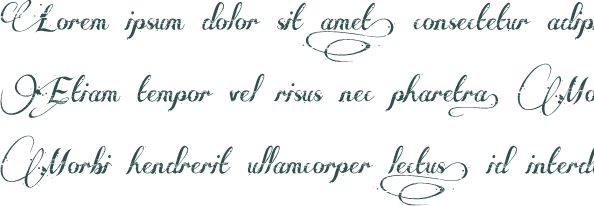 Lorem ipsum dolor sit amet consectetur adip
Etiam tempor vel risus nec pharetra Mo
Morbi hendrerit ullamcorper lectus id interd